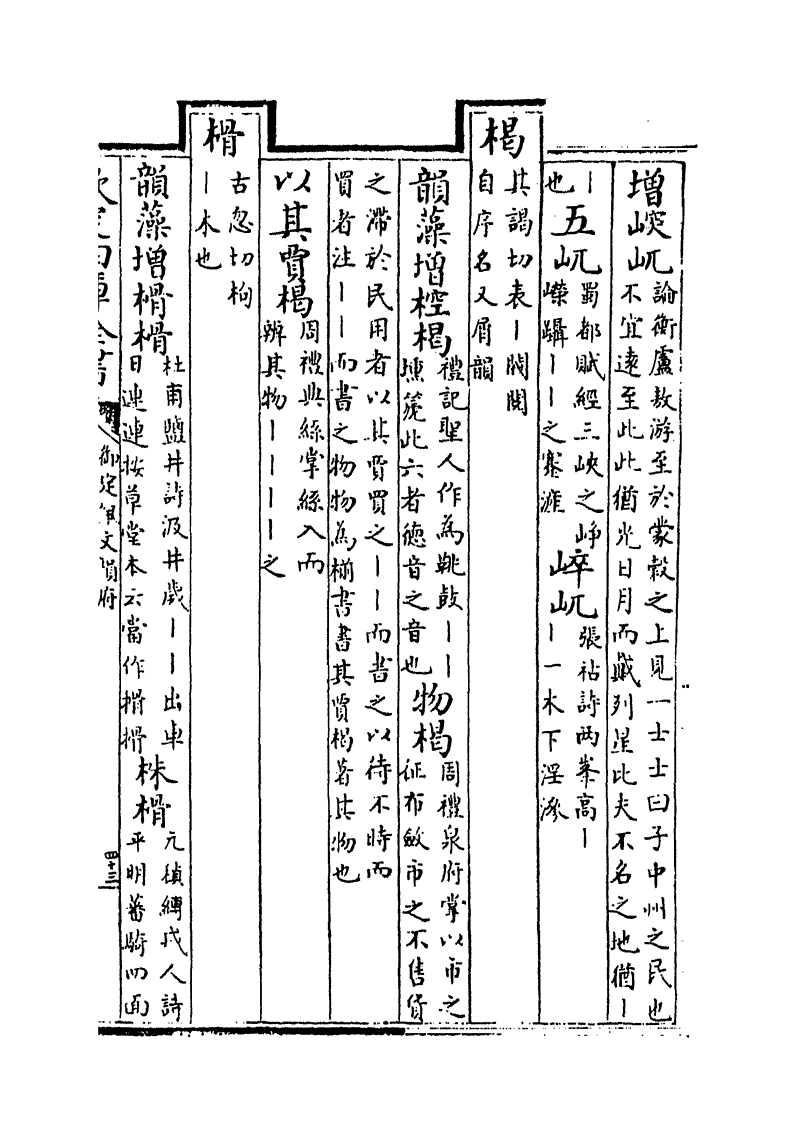 增㟮屼論衡盧敖游至於蒙穀之上見一士士曰子中州之民也
不宜遠至此此猶光日月而戴列星比夫不名之地猶丨
丨
也五屼蜀都賦經三峽之崢
嶸躡丨丨之蹇滻崪屼張祜詩两峯高丨
丨一木下淫滲
楬
其謁切表丨閥閱
自序名又屑韻
韻藻增椌楬禮記聖人作為鞉鼓丨丨
壎箎此六者德音之音也物楬周禮泉府掌以市之
征布斂市之不售貨
之滯於民用者以其賈買之丨丨而書之以待不時而
買者注丨丨而書之物物為揃書書其賈楬著其物也
以其賈楬周禮典絲掌絲入而
辨其物丨丨丨丨之
榾
古忽切枸
丨木也
韻藻增榾榾杜甫鹽井詩汲井歲丨丨出車
日連連按草堂本云當作搰搰株榾元稹縛戎人詩
平明蕃騎四面
欽定四庫全書
御定佩文韻府
四十三